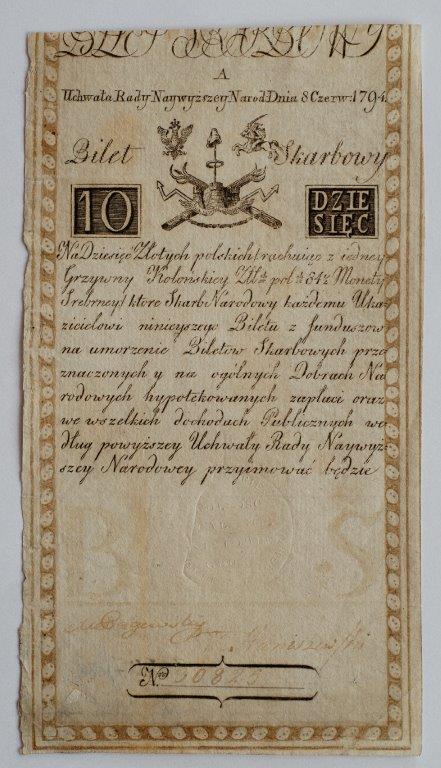 A
Uchwała Rady Naywyższey Narod: Dnia 8 Czerw: 1794.
Bilet Skarbowy
10 DZIE
SIĘC
Na Dziesięć Złotych polskich (rachuiąc z iedney
Grzywny Kolońskiey Złł: pol: 84½ Monety
Srebrney) które Skarb Narodowy każdemu Uka-
zicielowi ninieyszego Biletu z funduszow
na umorzenie Biletow Skarbowych prze-
znaczonych y na ogólnych Dobrach Na-
rodowych hypotekowanych zapłaci oraz
we wszelkich dochodach Publicznych we-
dług powyższey Uchwały Rady Naywyż-
szey Narodowey przyimować będzie
B S
N.ro